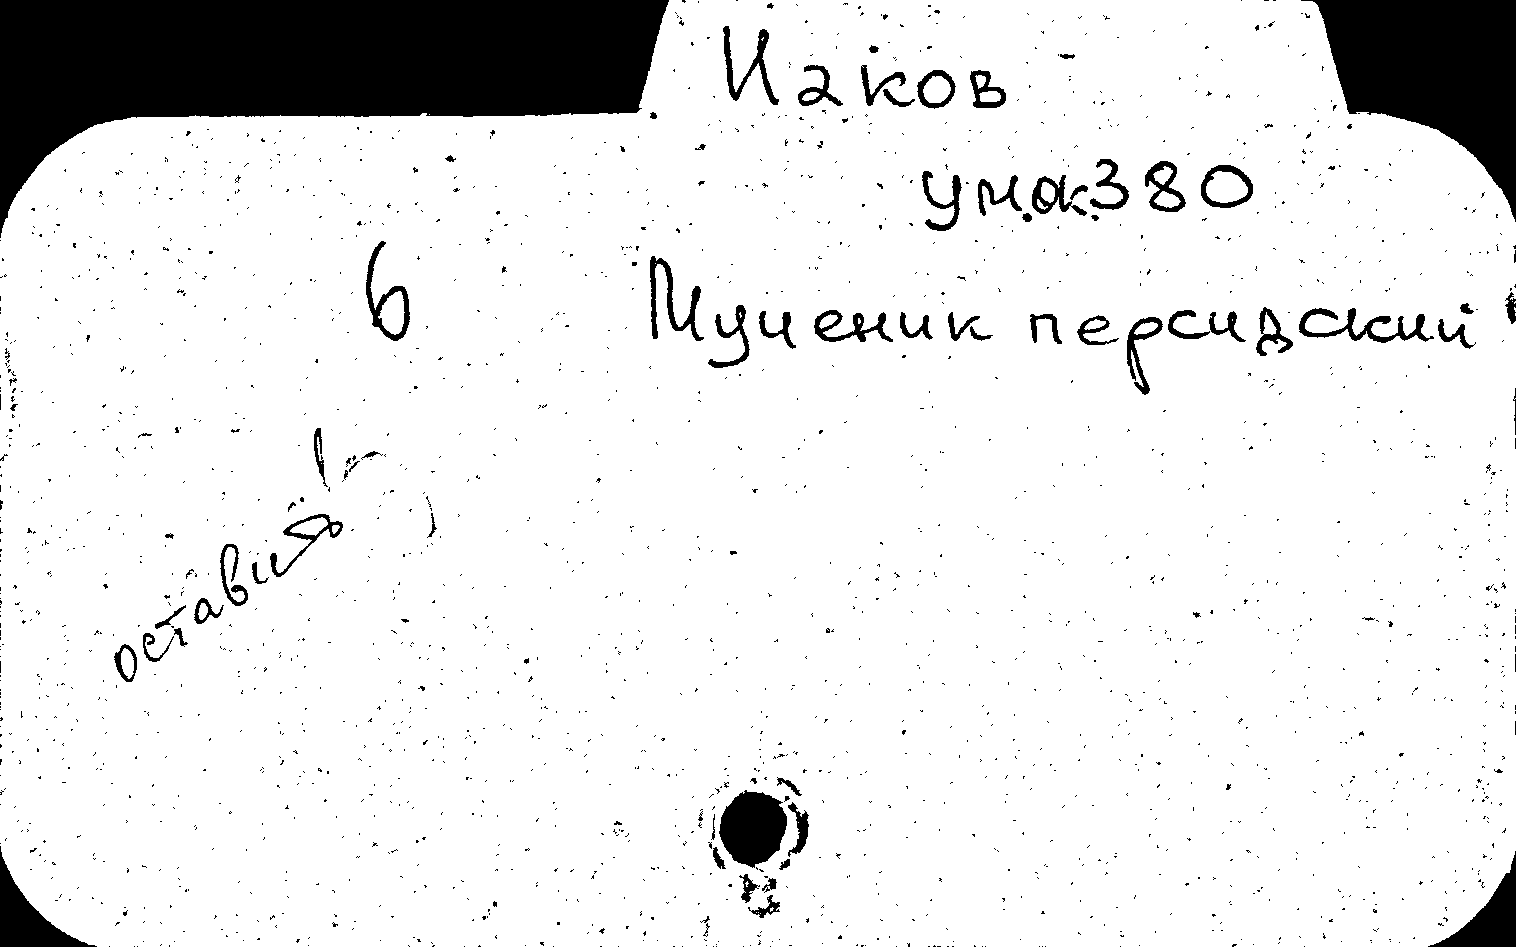 Иаков
ум.ок.380
6
Мученик персидский
оставить